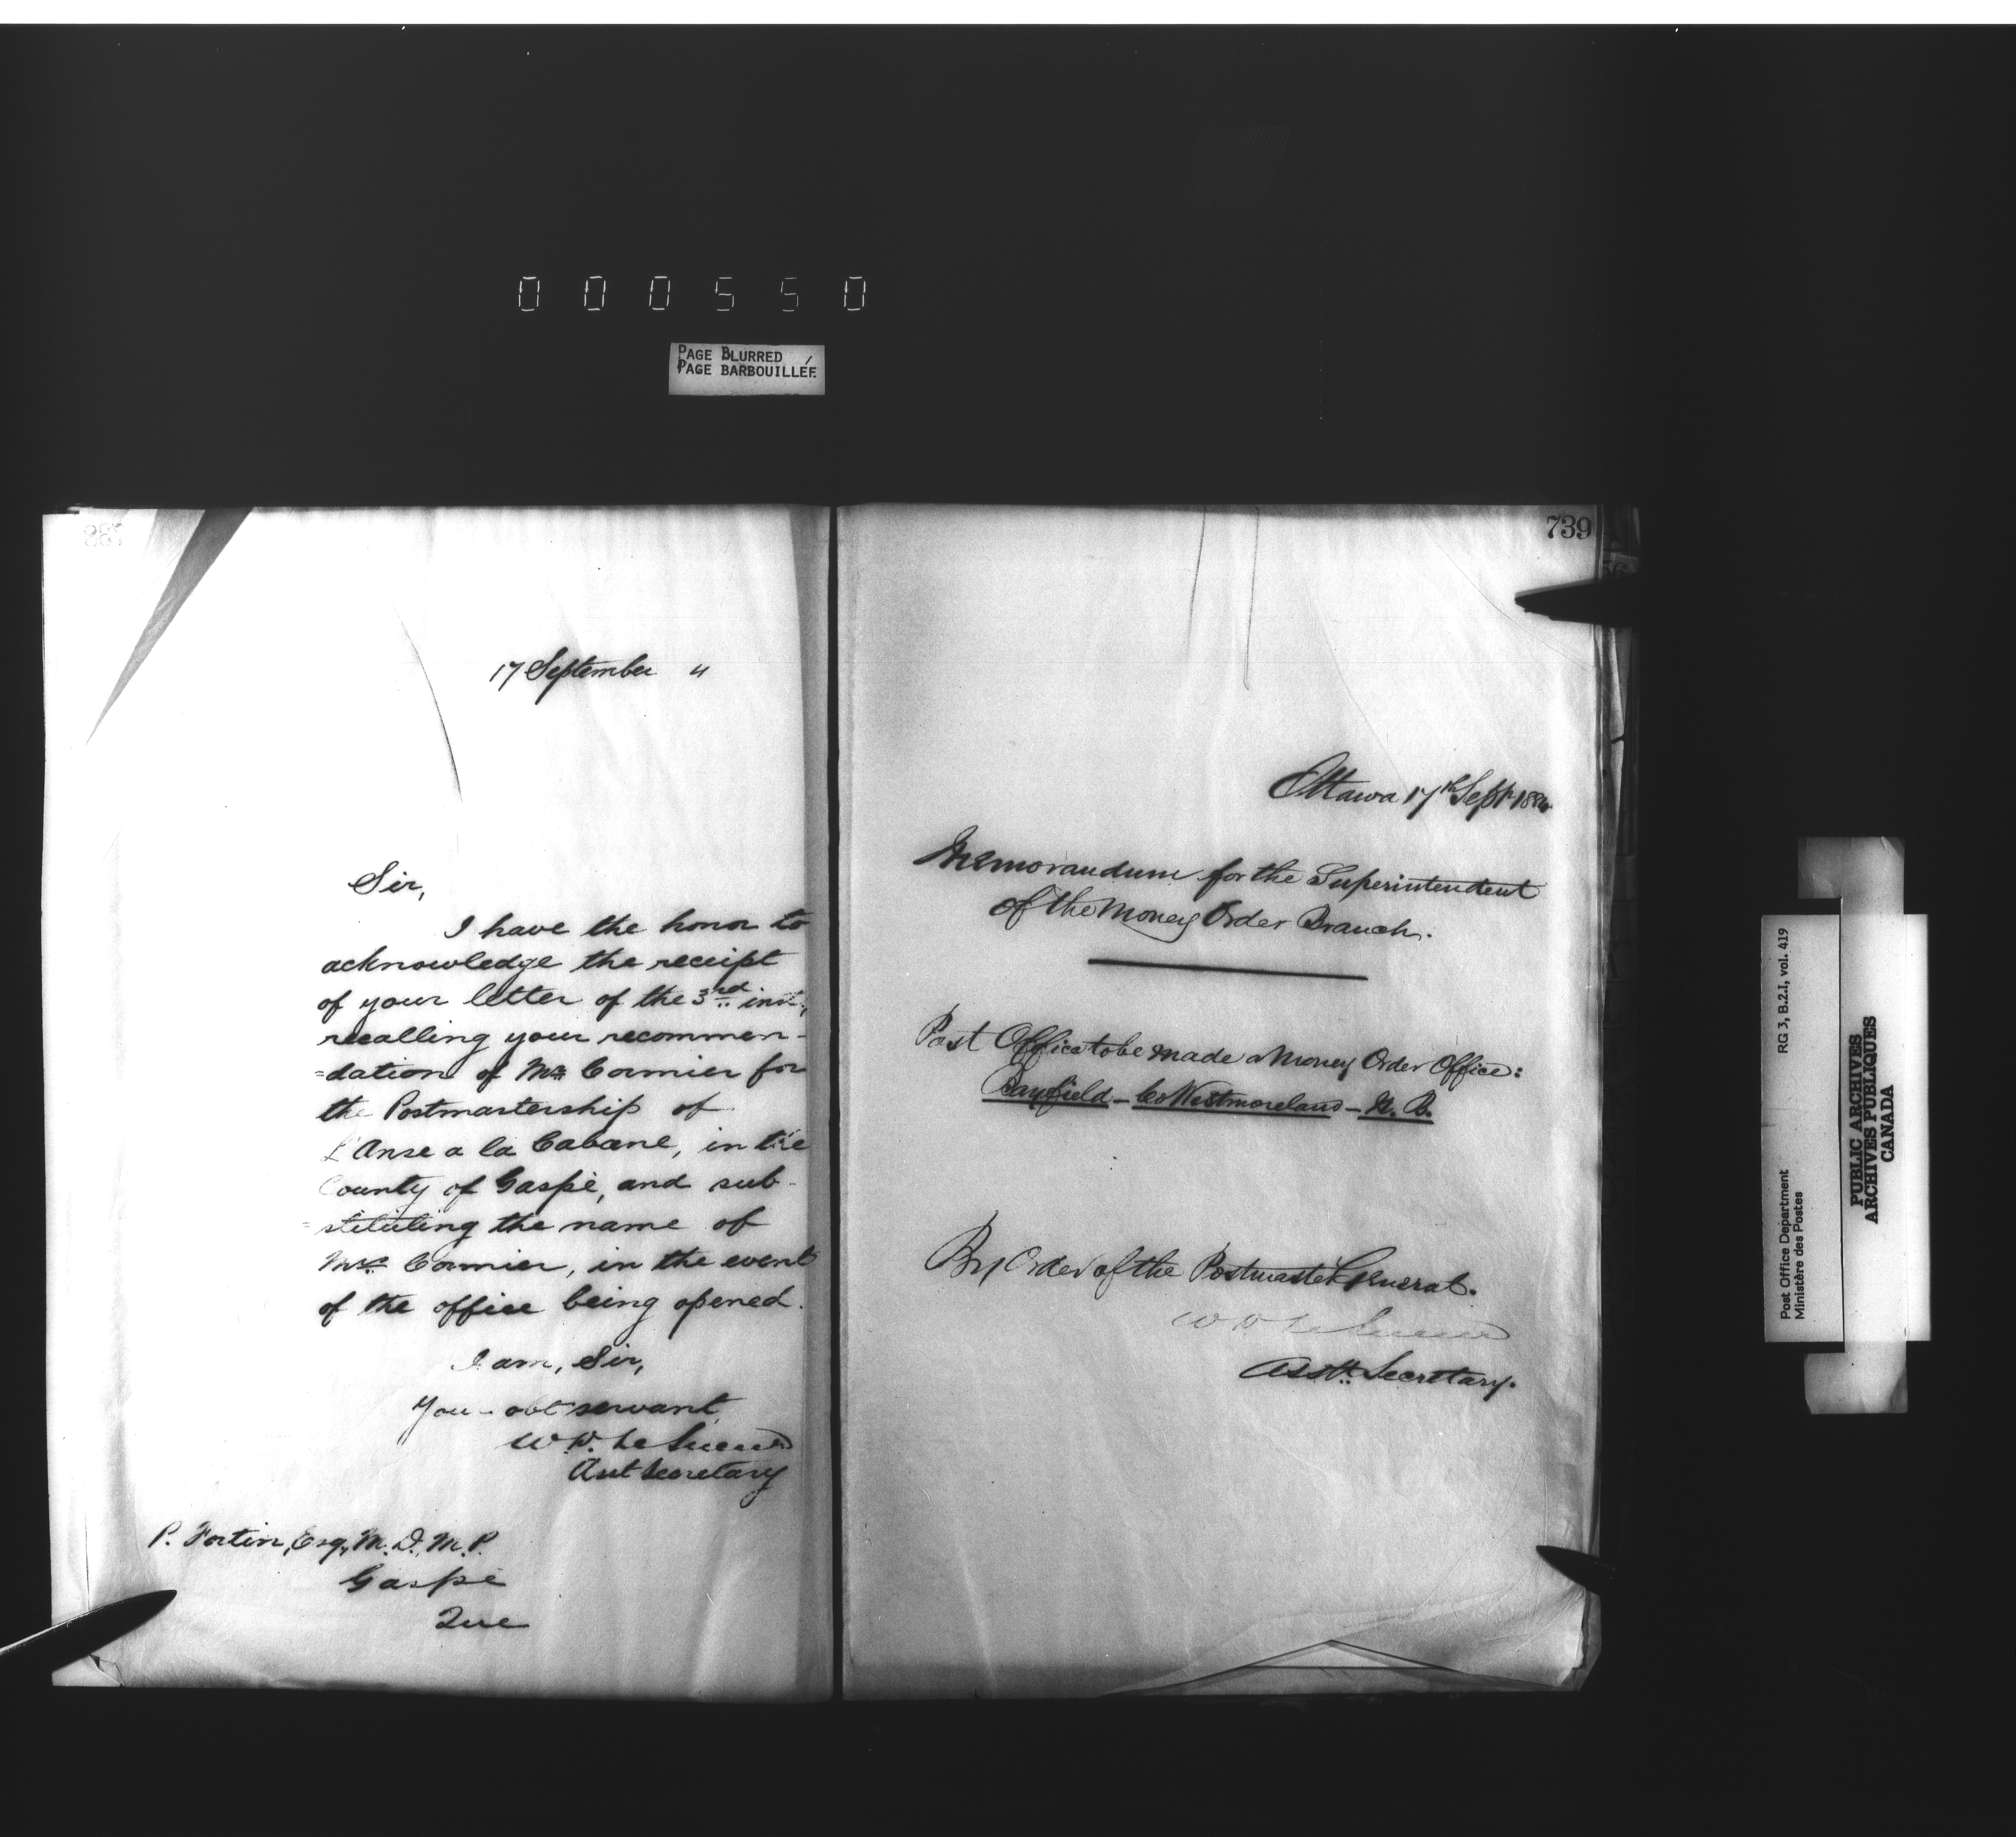 000550
PAGE BLURRED
PAGE BARBOUILLÉE
738
17 September 4
Sir,
I have the honor to
acknowledge the receipt
of your letter of the 3rd inst,
recalling your recommen-
=dation of Mr Cormier for
the Postmastership of
L'Anse a la Cabane, in the
County of Gaspé, and sub-
=stituting the name of
Mrs Cormier, in the event
of the office being opened.
I am, Sir,
Your obt servant
W. D. Le Sueur
Asst Secretary
P. Fortin, Esq., M. D., M. P.
Gaspé
Que
739
Ottawa 17th Sept 1884
Memorandum for the Superintendent
of the Money Order Branch.
Post Office to be made a Money Order Office:
Bayfield - Co Westmoreland - N. B.
By Order of the Postmaster General.
W D Le Sueur
Asst. Secretary.
RG 3, B.2.I, vol. 419
Post Office Department
Ministère des Postes
PUBLIC ARCHIVES
ARCHIVES PUBLIQUES
CANADA